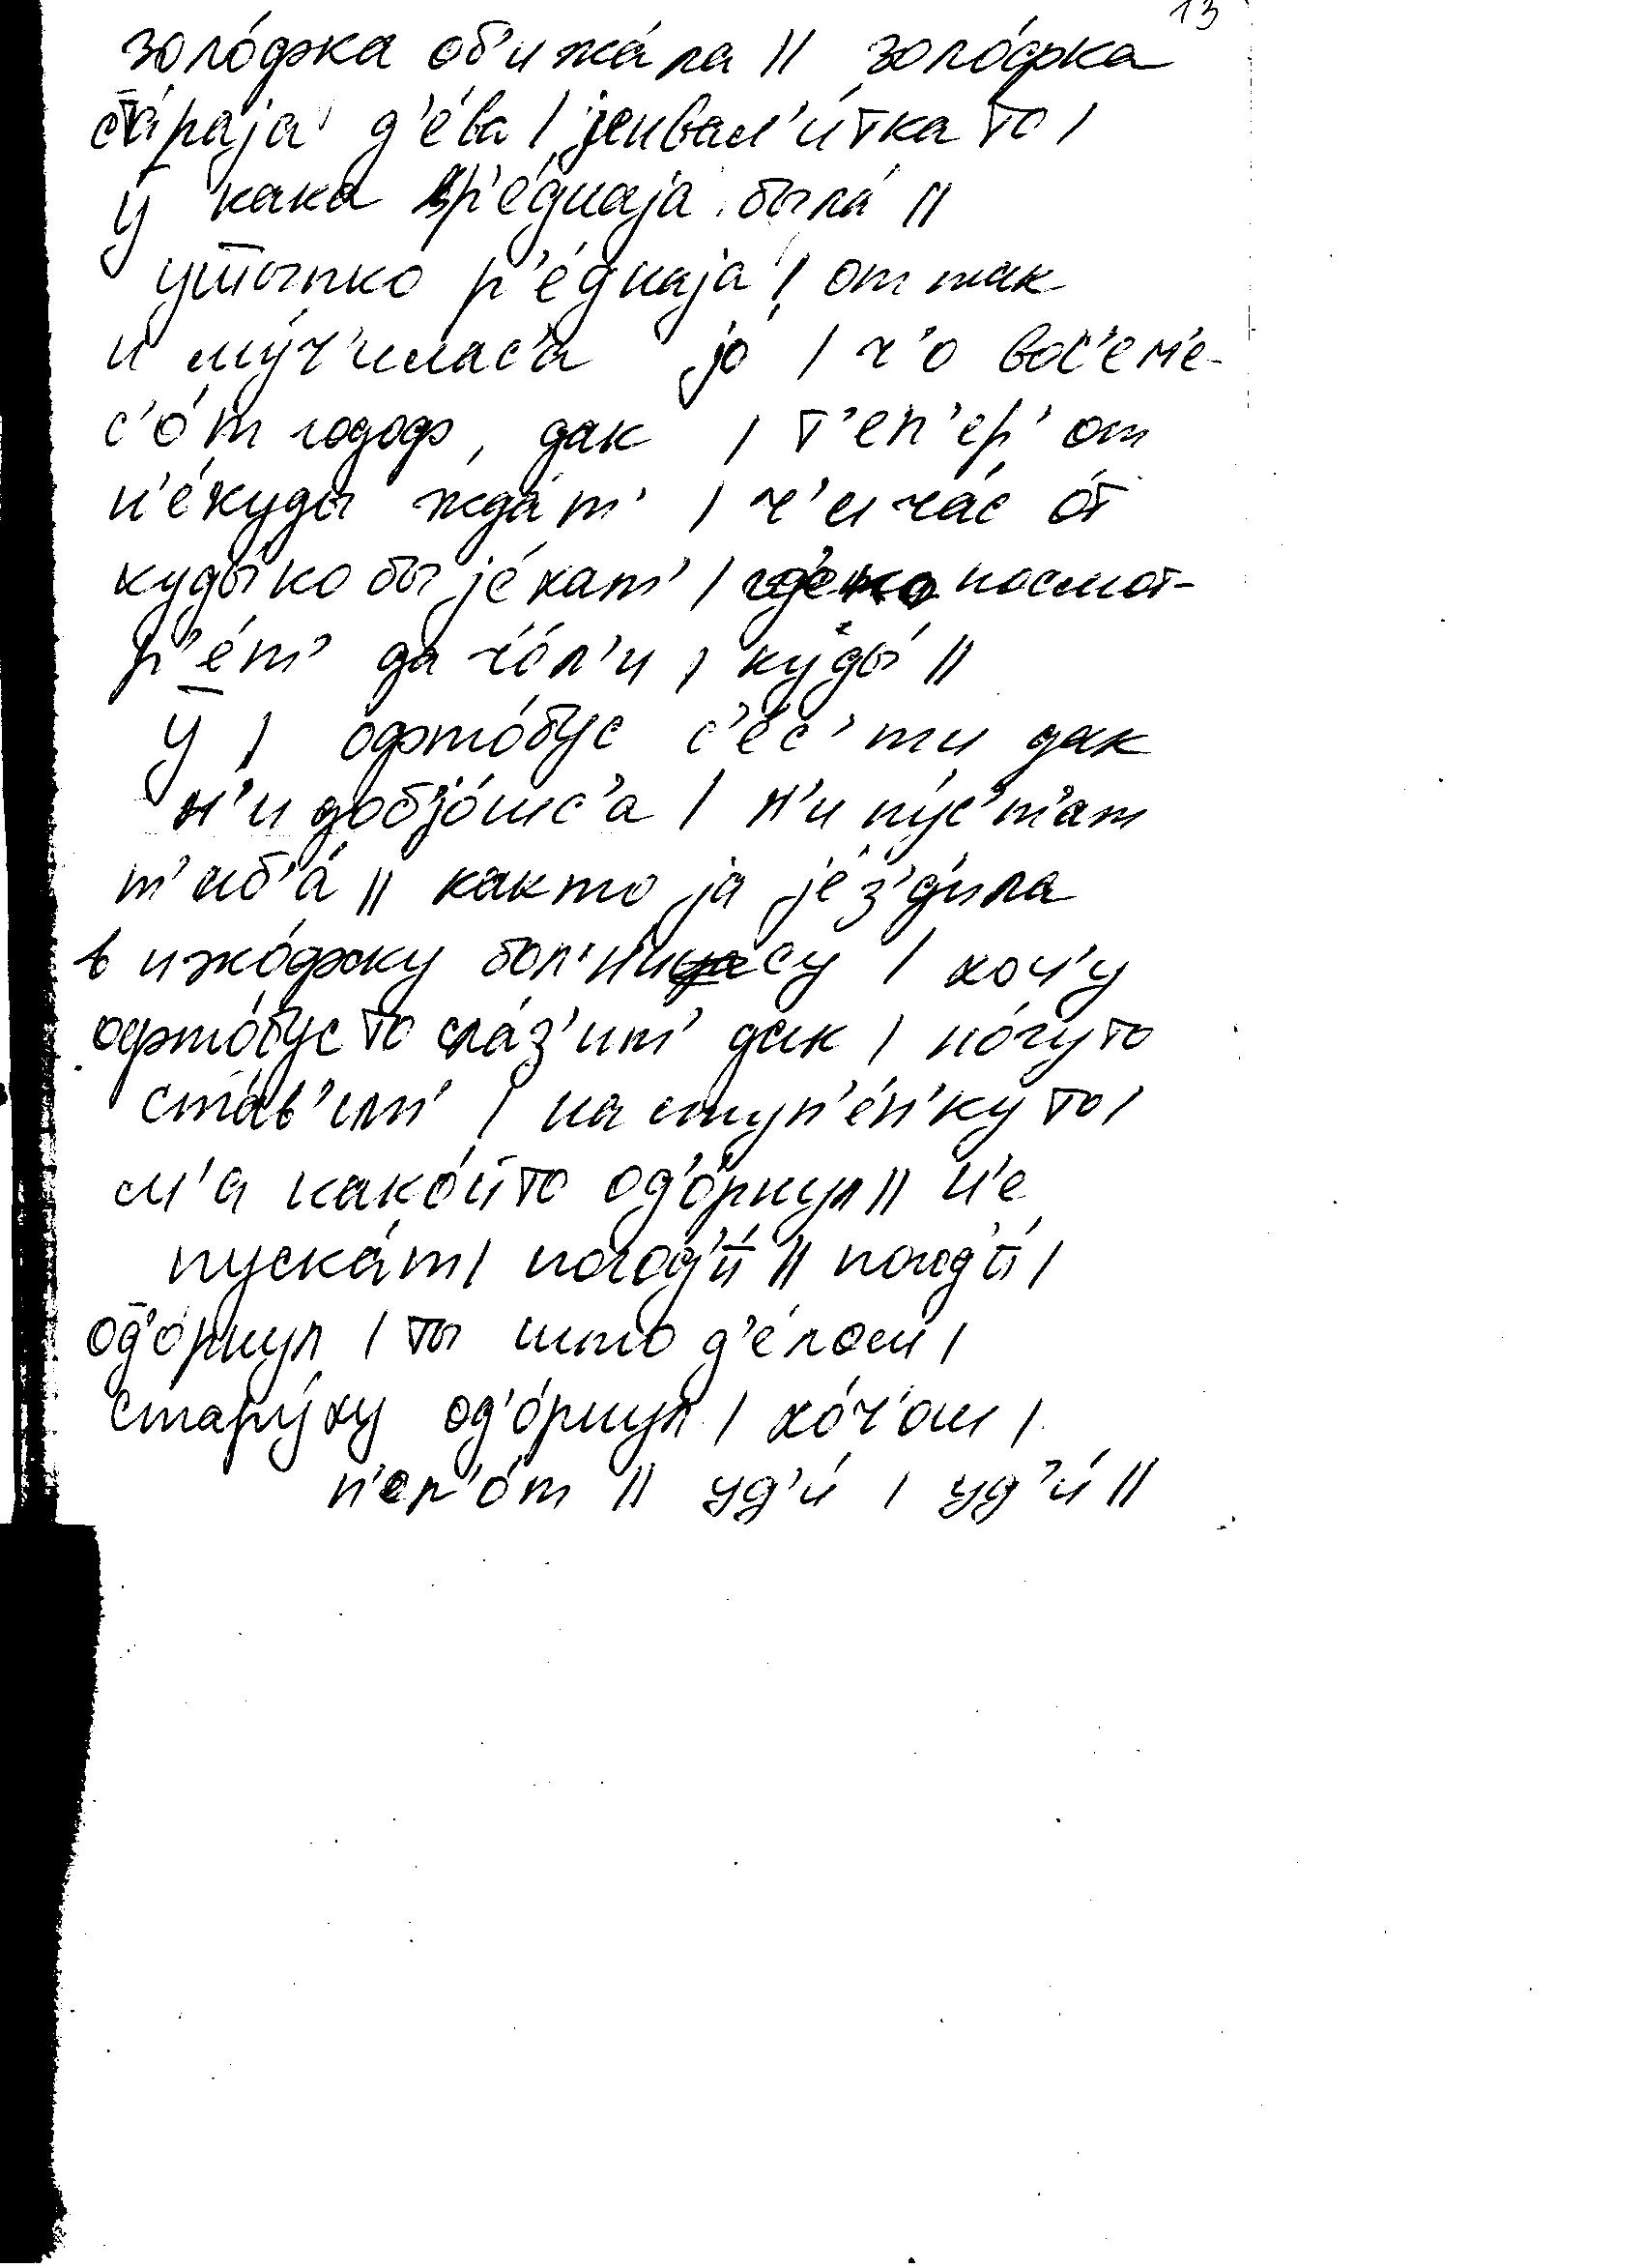 13
золо́фка об'ижа́ла || золо́фка
ста́раjа д'е́ва | jенвал'и́тка то |
ӯ кака вр'е́днаjа была́ ||
р'е́днаjа | от так
и му́ч'илас'а jо | ч'о вос'ем'е-
с'о́т годоф, дак | т'еп'ер' от
н'е́куды жда́т' | ч'ича́с о́т
куды́ко бы jе́хат' | посмот-
р'е́т' да ч'о́л'и | куды́ ||
ӯ | офто́бус с'ес'ти дак
н'и доб'jо́шс'а | н'и пу́с'т'ат
т'иб'а́ || как то jа jе́з'д'ила
в ижо́фску бол'н'ису | хоч'у
офто́бус то сла́з'ит' дак | но́гу то
ста́в'ит' | на ступ'е́н'ку то |
м'а како́й то од'о́рнул || н'е
пуска́т | погод'и́ || погод'и́ |
од'о́рнул | ты што д'е́лош |
стару́ху од'о́рнул | хо́ч'ош |
п'ер'о́т || уд'и́ | уд'и́ ||